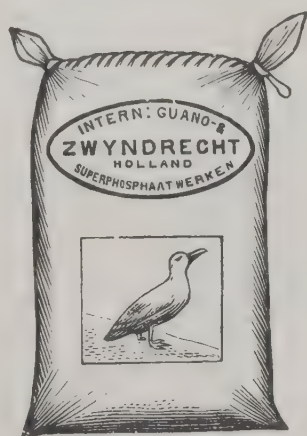 INTERN: GUANO-&
ZWYNDRECHT
HOLLAND
SUPERPHOSPHAATWERKEN